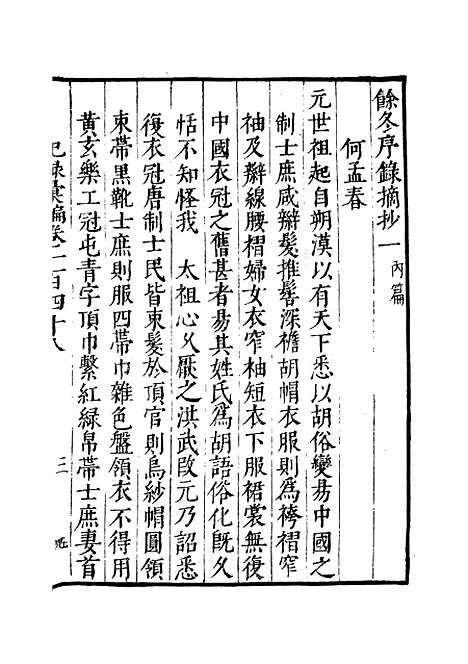 餘冬序錄摘抄一 內篇
何孟春
元世祖起自朔漠以有天下悉以胡俗變易中國之
制士庶咸辮髮推髻深襜胡帽衣服則爲袴褶窄
袖及辮線腰褶婦女衣窄袖短衣下服裙裳無復
中國衣冠之舊甚者易其姓氏爲胡語俗化既久
恬不知怪我 太祖心久厭之洪武改元乃詔悉
復衣冠唐制士民皆束髮於頂官則烏紗帽圓領
束帶黑靴士庶則服四帶巾雜色盤領衣不得用
黃玄樂工冠屯青字頂巾繫紅綠帛帶士庶妻首
紀錄彙編卷一百四十八 三